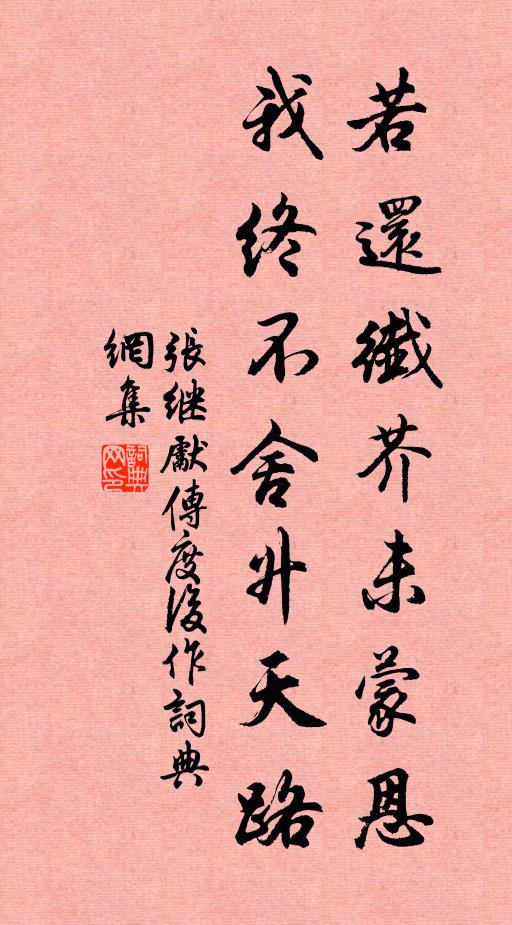 若還纖芥未蒙恩
我終不舍升天路
張继獻傳度後作詞典
網集
詞典
网印